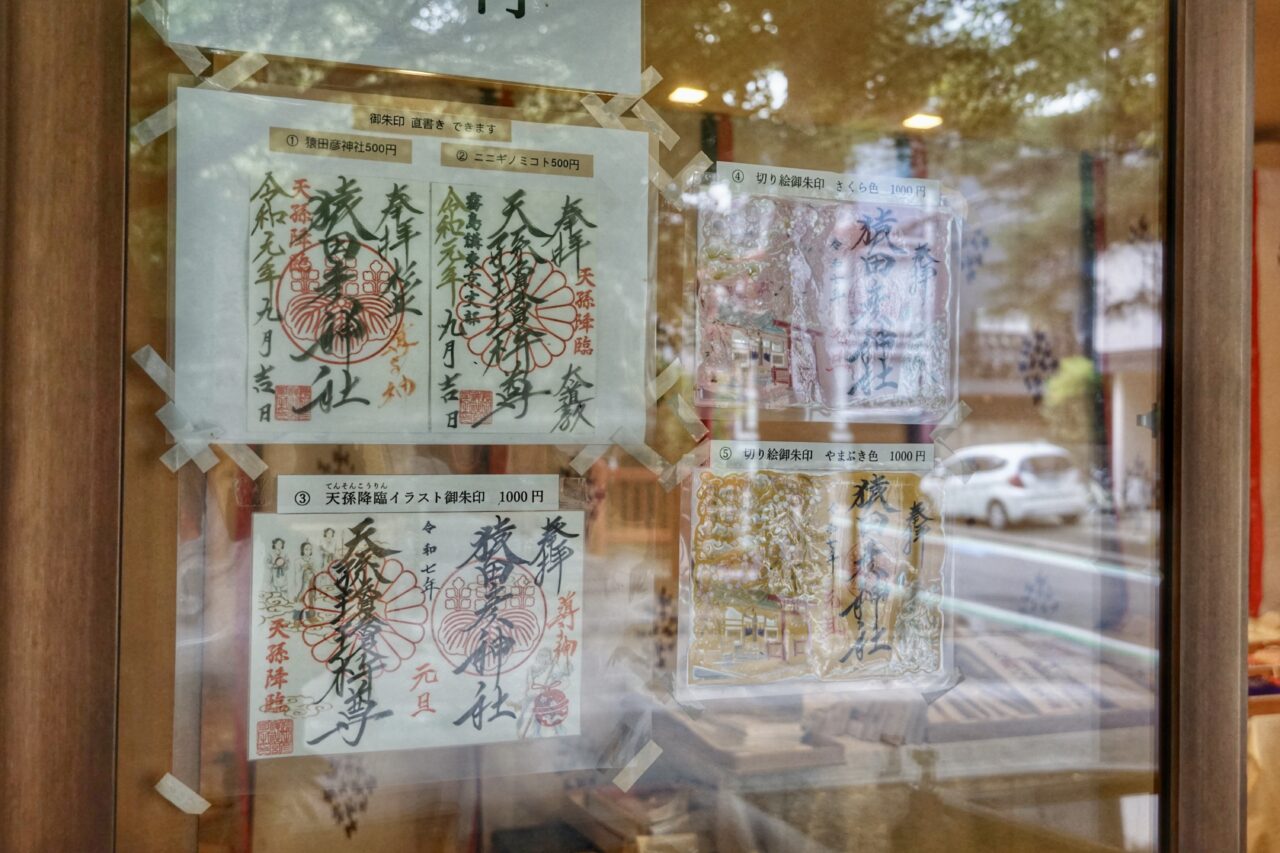 御朱印 直書き できます
① 猿田彦神社500円
② ニニギノミコト500円
奉拝
猿田彦神社
天孫降臨
令和元年九月吉日
奉拝
天孫降臨
霧島講東京本部
令和元年九月吉日
③ 天孫降臨イラスト御朱印 1000円
てんそんこうりん
奉拝
猿田彦神社
元旦
令和七年
天孫降臨
④ 切り絵御朱印 さくら色 1000円
奉拝
猿田彦神社
⑤ 切り絵御朱印 やまぶき色 1000円
奉拝
猿田彦神社